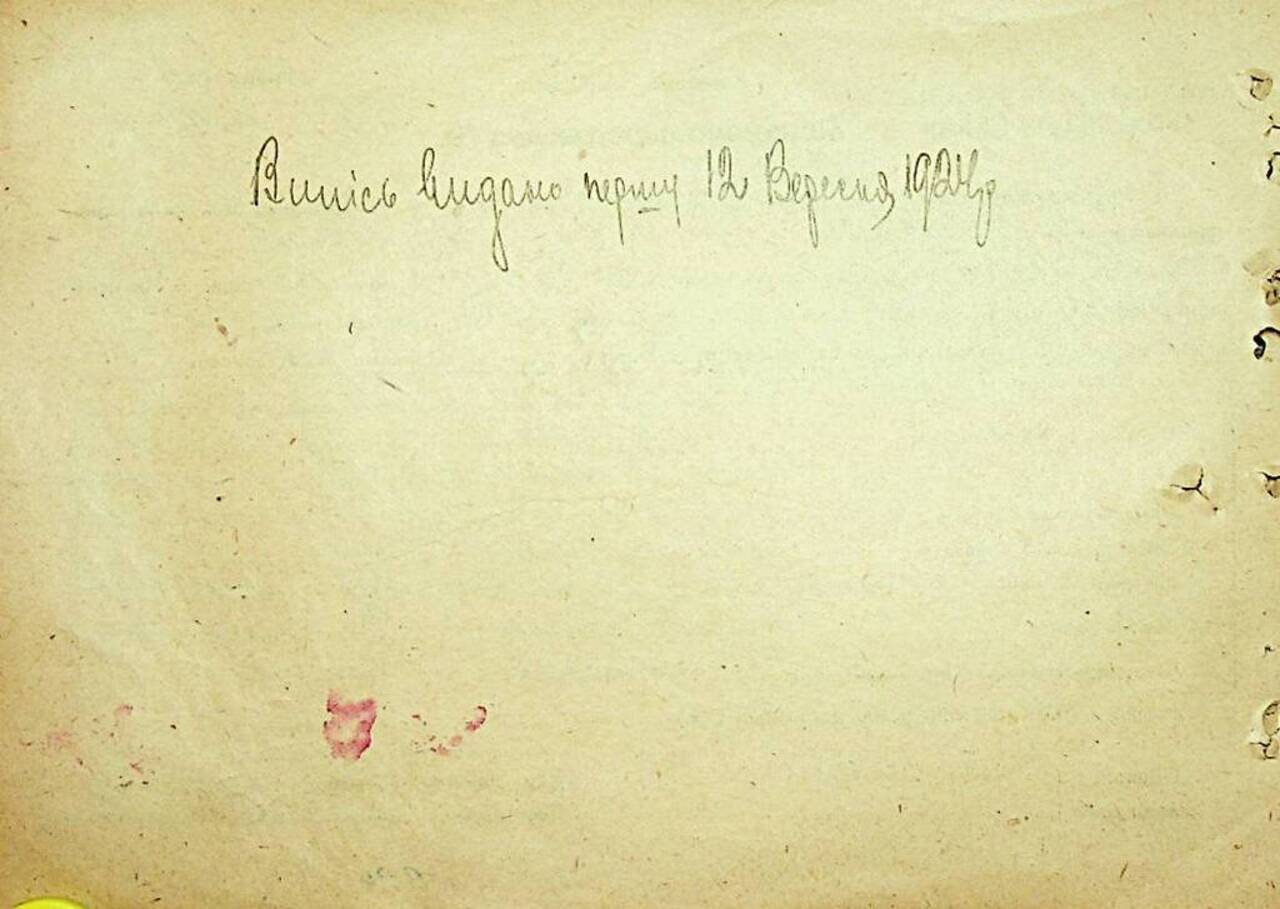 Виписъ видано першу 12 Вересня 1924р